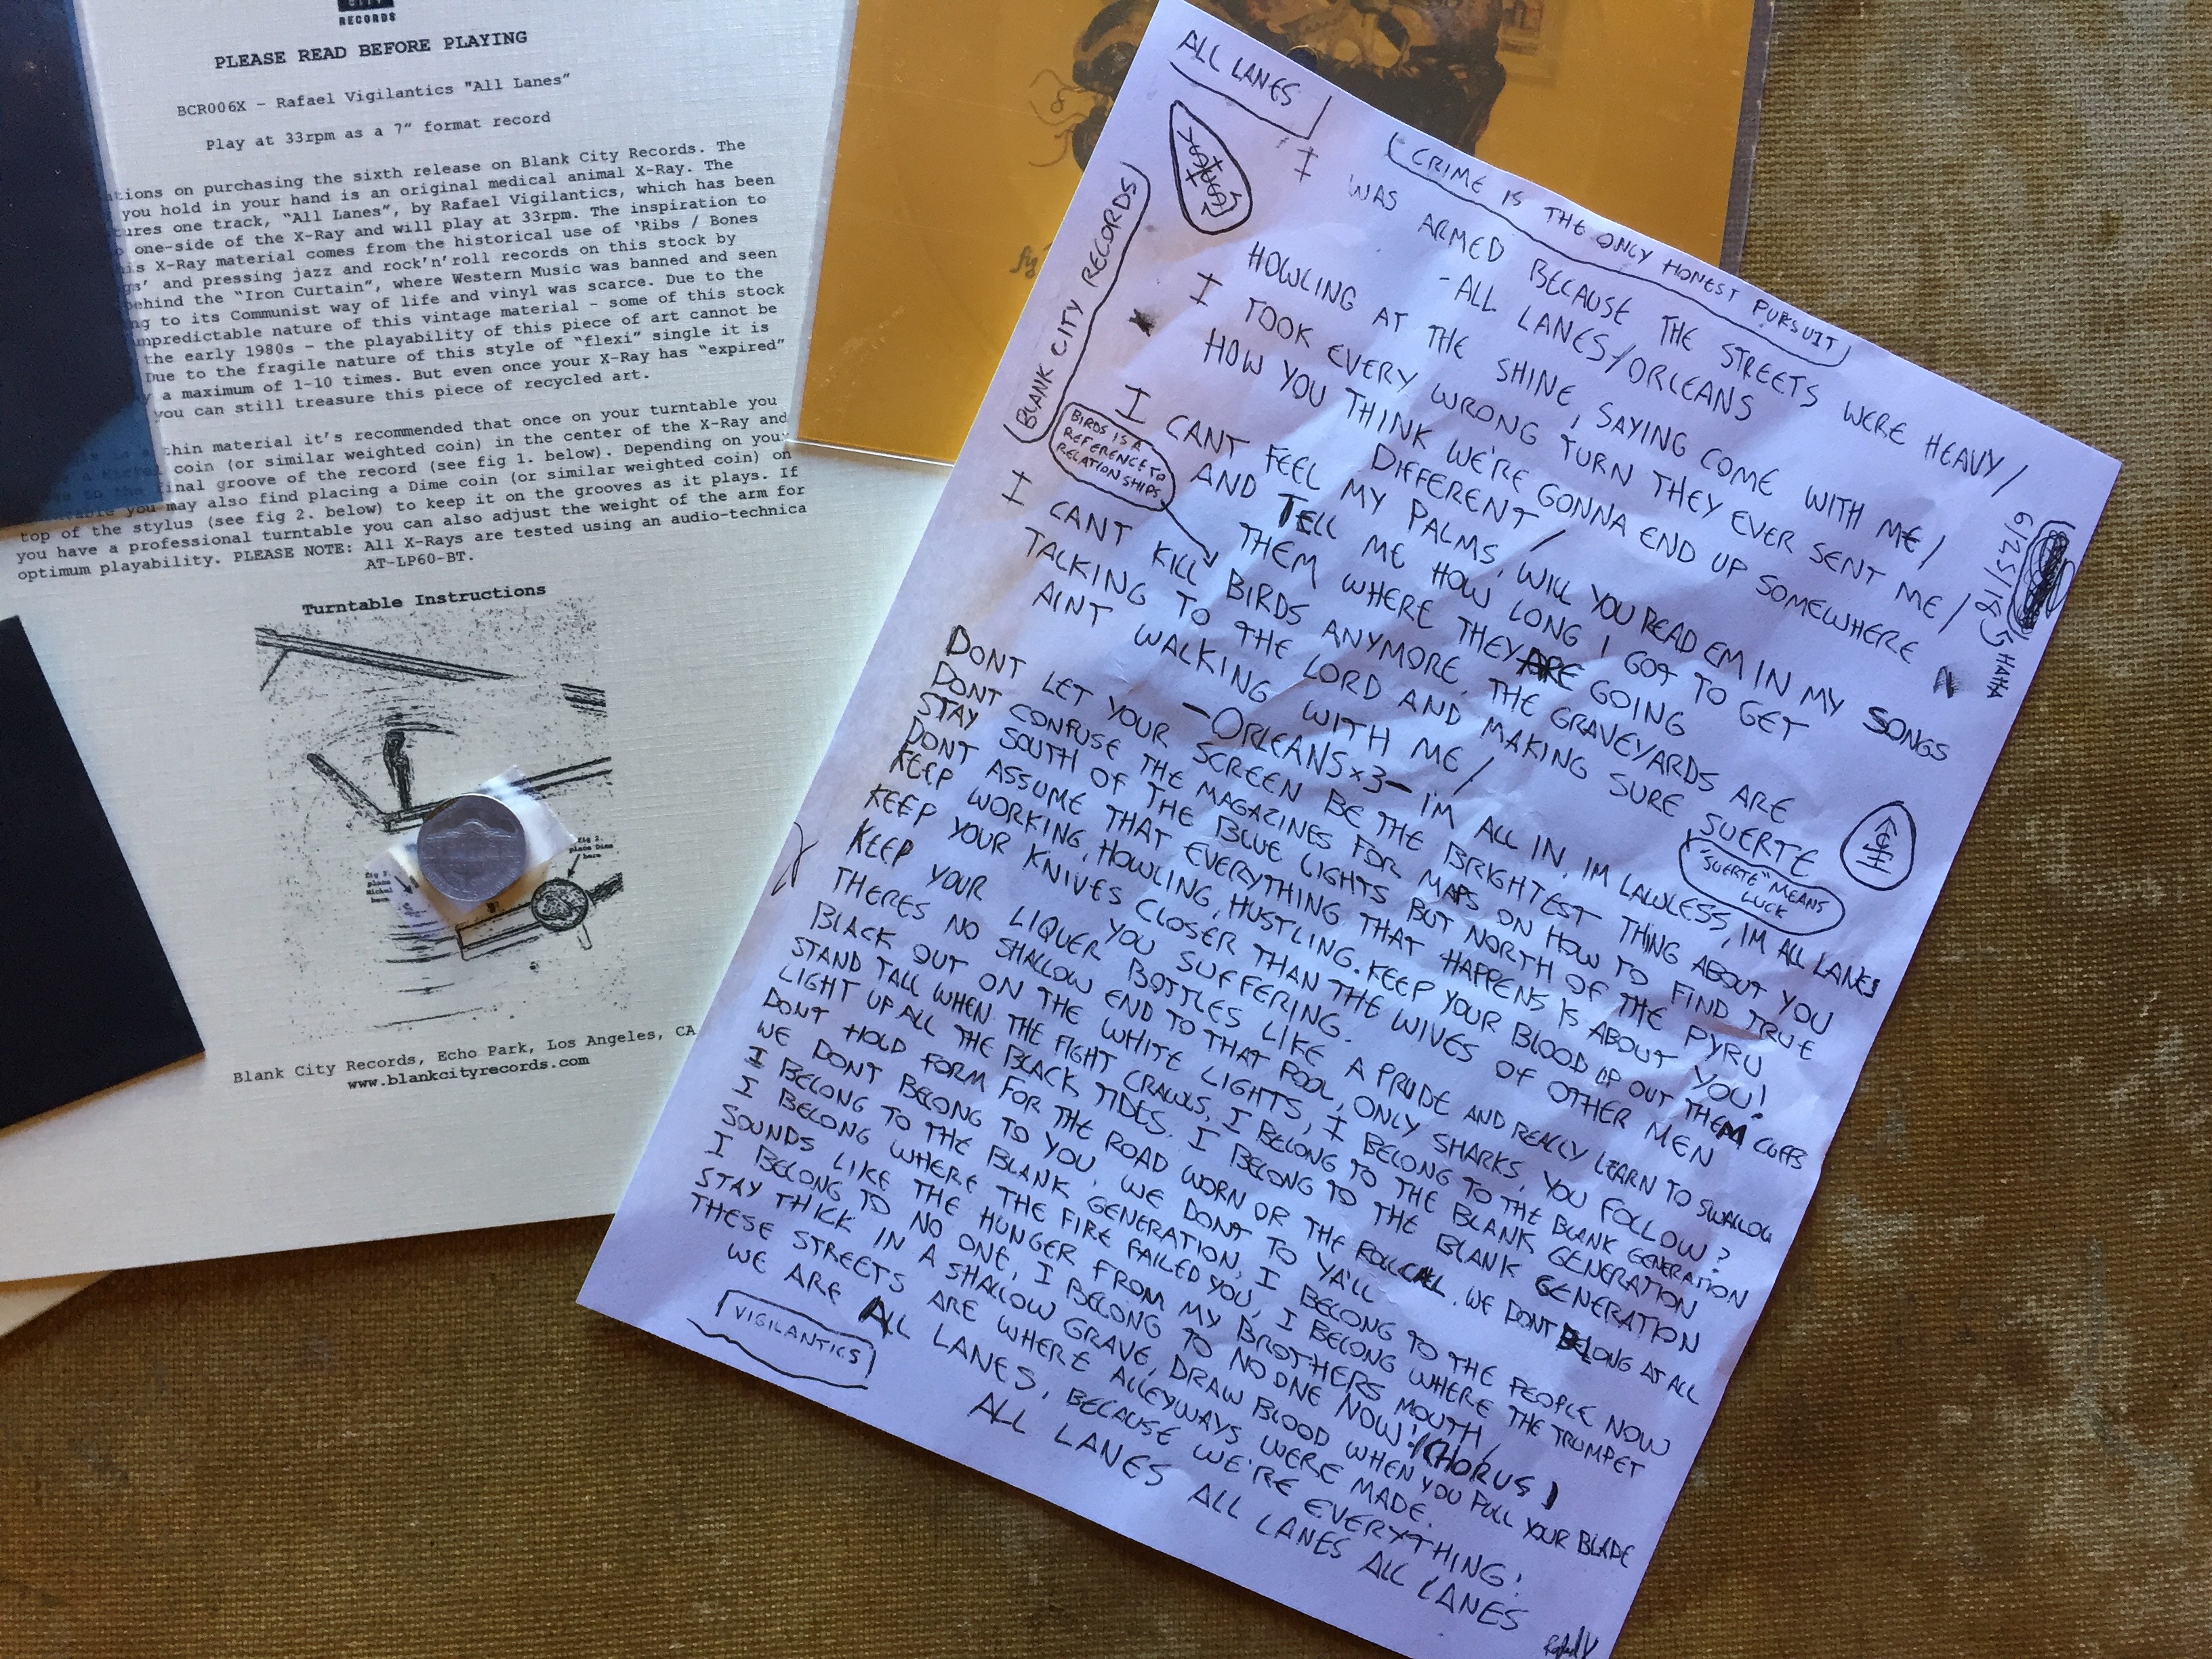 CITY
RECORDS
PLEASE READ BEFORE PLAYING
BCR006X - Rafael Vigilantics "All Lanes"
Play at 33rpm as a 7" format record
tions on purchasing the sixth release on Blank City Records. The
you hold in your hand is an original medical animal X-Ray. The
ures one track, "All Lanes", by Rafael Vigilantics, which has been
one-side of the X-Ray and will play at 33rpm. The inspiration to
is X-Ray material comes from the historical use of 'Ribs / Bones
gs' and pressing jazz and rock'n'roll records on this stock by
behind the "Iron Curtain", where Western Music was banned and seen
ng to its Communist way of life and vinyl was scarce. Due to the
unpredictable nature of this vintage material - some of this stock
the early 1980s - the playability of this piece of art cannot be
Due to the fragile nature of this style of "flexi" single it is
y a maximum of 1-10 times. But even once your X-Ray has "expired"
you can still treasure this piece of recycled art.
thin material it's recommended that once on your turntable you
a Nickel coin (or similar weighted coin) in the center of the X-Ray and
to the final groove of the record (see fig 1. below). Depending on your
you may also find placing a Dime coin (or similar weighted coin) on
top of the stylus (see fig 2. below) to keep it on the grooves as it plays. If
you have a professional turntable you can also adjust the weight of the arm for
optimum playability. PLEASE NOTE: All X-Rays are tested using an audio-technica
AT-LP60-BT.
Turntable Instructions
fig 2.
place Dime
here
fig 1.
place
Nickel
here
Blank City Records, Echo Park, Los Angeles, CA
www.blankcityrecords.com
ALL LANES
CRIME IS THE ONLY HONEST PURSUIT
BLANK CITY RECORDS
I WAS ARMED BECAUSE THE STREETS WERE HEAVY/
-ALL LANES/ORLEANS
HOWLING AT THE SHINE, SAYING COME WITH ME/
I TOOK EVERY WRONG TURN THEY EVER SENT ME/
HOW YOU THINK WE'RE GONNA END UP SOMEWHERE
DIFFERENT/
I CANT FEEL MY PALMS, WILL YOU READ EM IN MY SONGS
AND TELL ME HOW LONG I GOT TO GET
THEM WHERE THEY ARE GOING
BIRDS IS A
REFERENCE TO
RELATIONSHIPS
I CANT KILL BIRDS ANYMORE, THE GRAVEYARDS ARE
TALKING TO THE LORD AND MAKING SURE SUERTE
AINT WALKING WITH ME/
"SUERTE" MEANS
LUCK
6/25/18
-ORLEANS x3- I'M ALL IN, IM LAWLESS, IM ALL LANES
DONT LET YOUR SCREEN BE THE BRIGHTEST THING ABOUT YOU
DONT CONFUSE THE MAGAZINES FOR MAPS ON HOW TO FIND TRUE
STAY SOUTH OF THE BLUE LIGHTS BUT NORTH OF THE PYRU
DONT ASSUME THAT EVERYTHING THAT HAPPENS IS ABOUT YOU!
KEEP WORKING, HOWLING, HUSTLING. KEEP YOUR BLOOD UP OUT THEM CUFFS
KEEP YOUR KNIVES CLOSER THAN THE WIVES OF OTHER MEN
YOU SUFFERING.
KEEP YOUR LIQUER BOTTLES LIKE A PRIDE AND REALLY LEARN TO SWALLOW
THERES NO SHALLOW END TO THAT POOL, ONLY SHARKS, YOU FOLLOW?
BLACK OUT ON THE WHITE LIGHTS, I BELONG TO THE BLANK GENERATION
STAND TALL WHEN THE FIGHT CRAWLS, I BELONG TO THE BLANK GENERATION
LIGHT UP ALL THE BLACK TIDES. I BELONG TO THE BLANK GENERATION
DONT HOLD FORM FOR THE ROAD WORN OR THE ROLLCALL. WE DONT BELONG AT ALL
WE DONT BELONG TO YOU, WE DONT TO YA'LL
I BELONG TO THE BLANK GENERATION, I BELONG TO THE PEOPLE NOW
I BELONG WHERE THE FIRE FAILED YOU, I BELONG WHERE THE TRUMPET
SOUNDS LIKE THE HUNGER FROM MY BROTHERS MOUTH/
I BELONG TO NO ONE, I BELONG TO NO ONE NOW! (CHORUS)
STAY THICK IN A SHALLOW GRAVE, DRAW BLOOD WHEN YOU PULL YOUR BLADE
THESE STREETS ARE WHERE ALLEYWAYS WERE MADE.
WE ARE ALL LANES, BECAUSE WE'RE EVERYTHING!
ALL LANES ALL LANES ALL LANES
VIGILANTICS